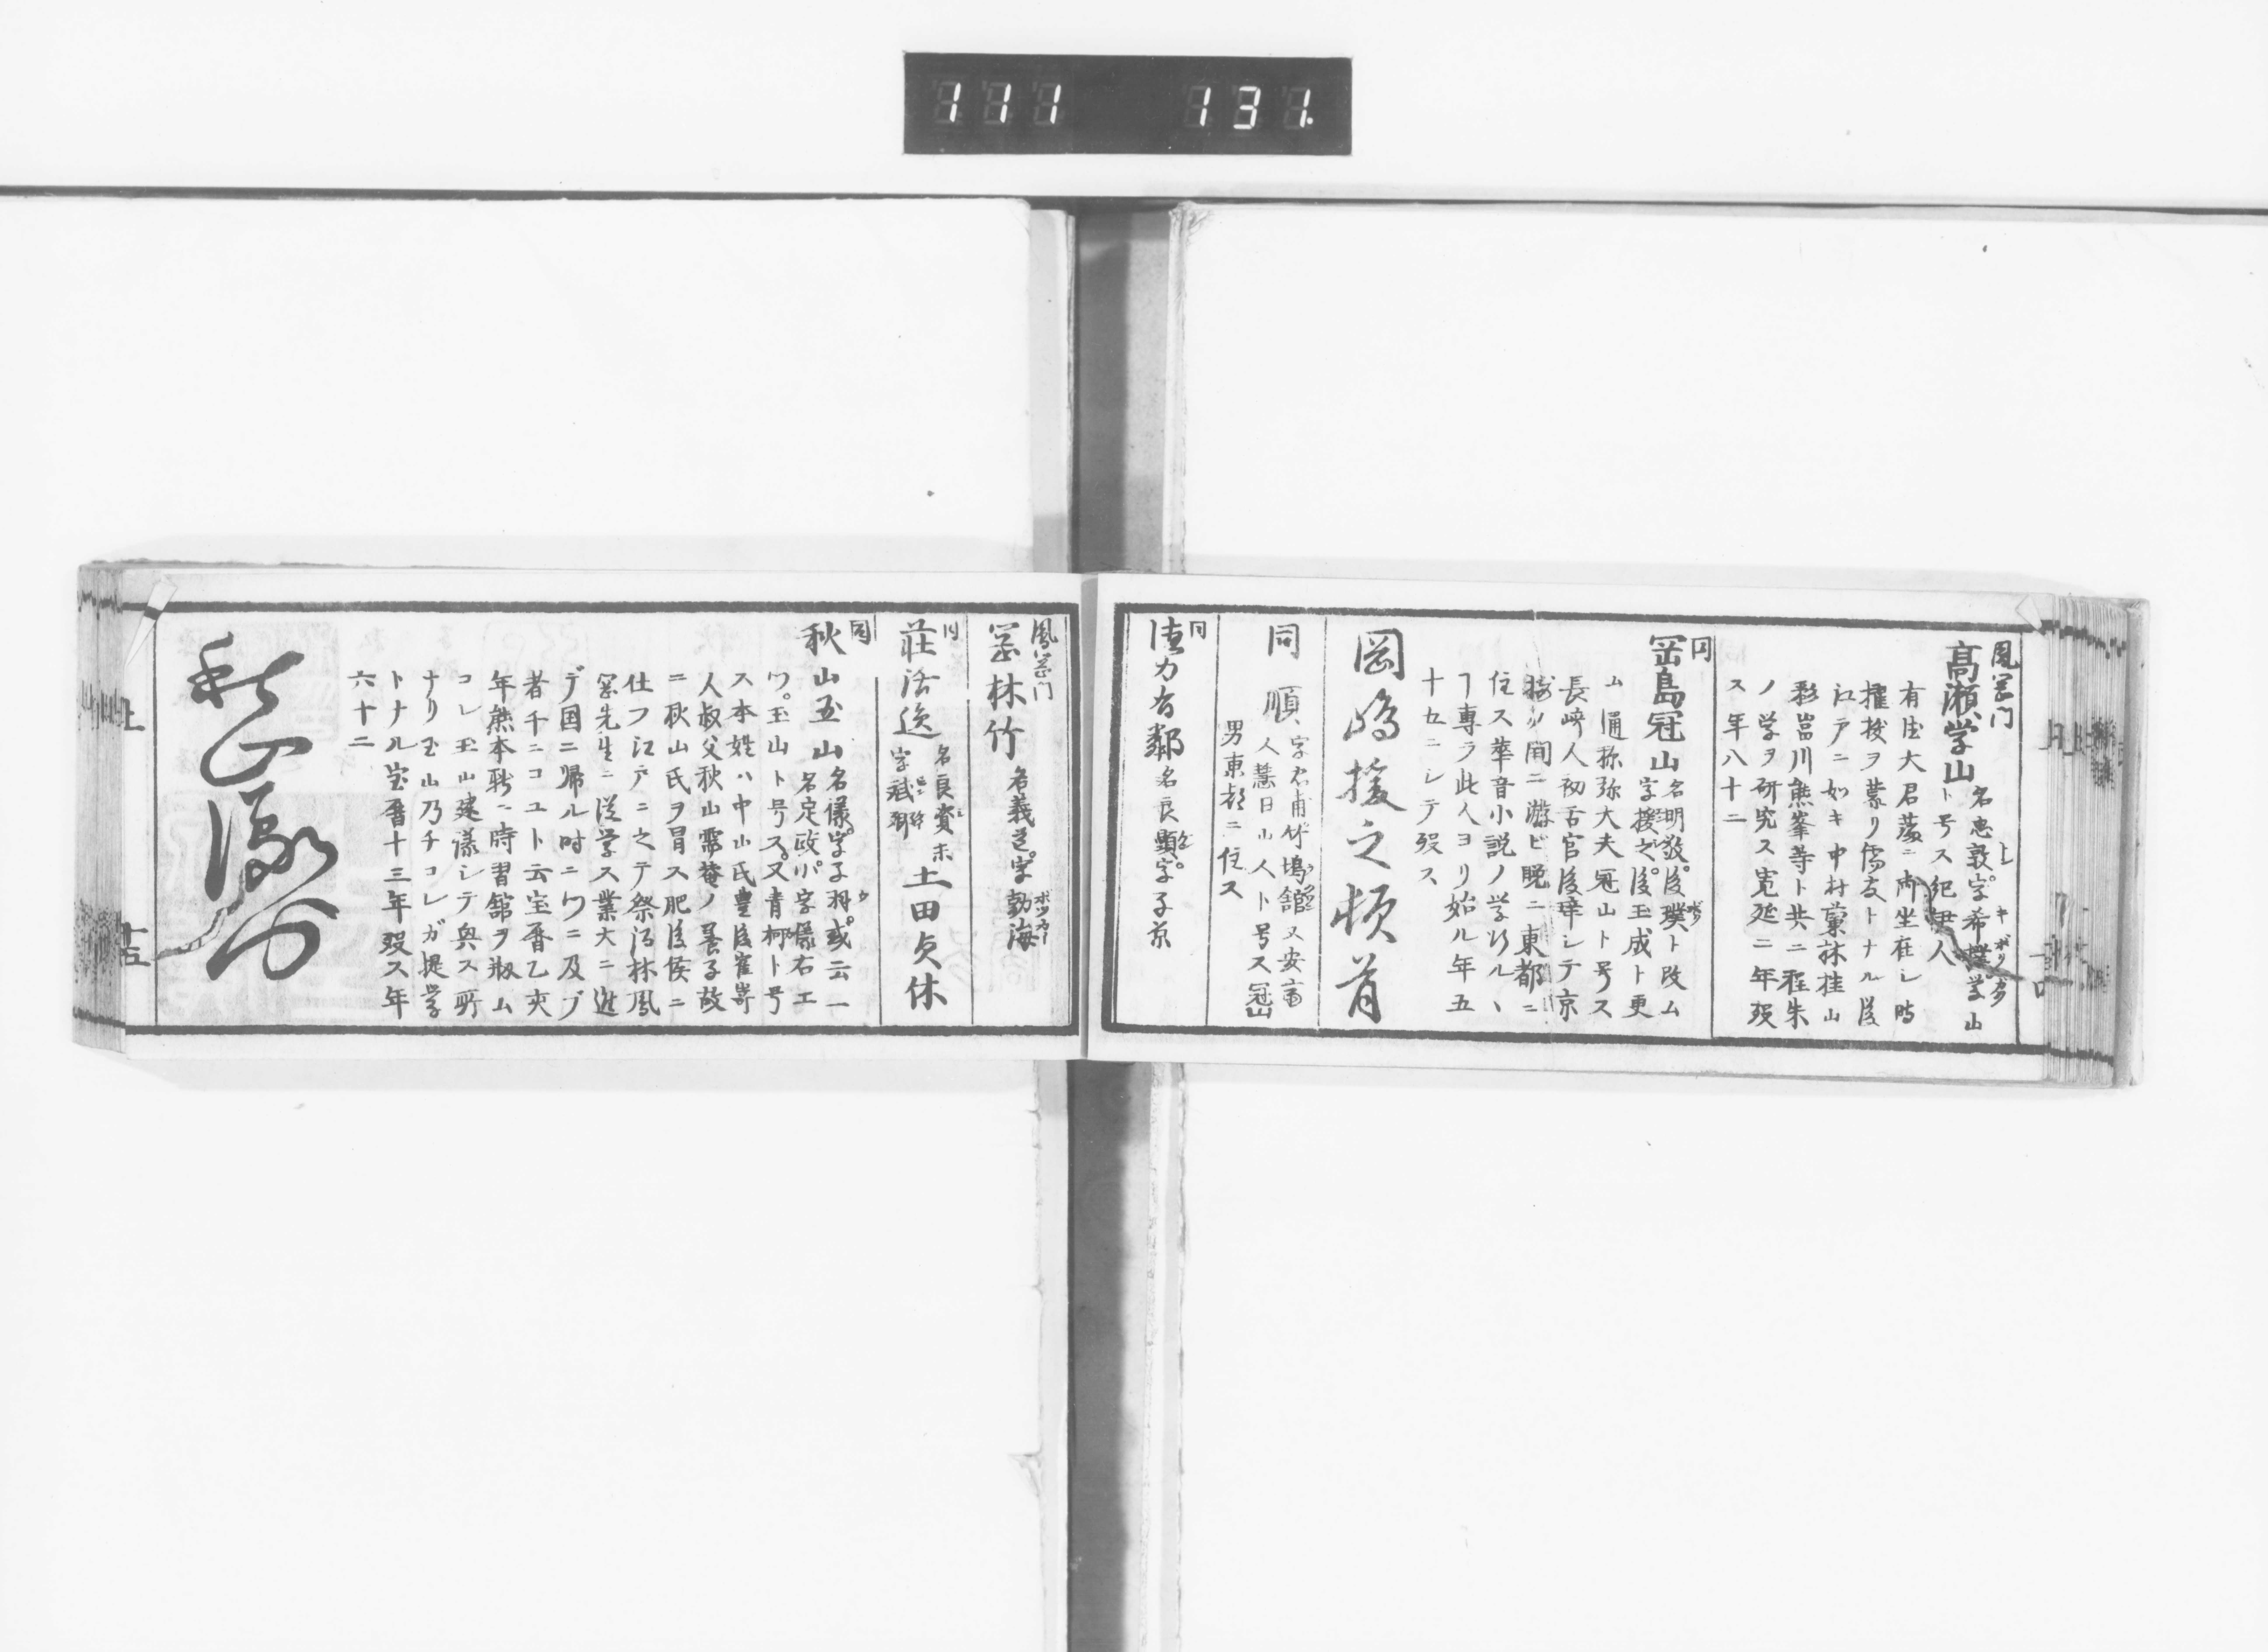 111 131.
鳳岡門
高瀬学山
名忠敦。字希樸。学山
ト号ス紀伊人
有徳大君藩ニ御坐在シ時
擢抜ヲ蒙リ儒友トナル後
江戸ニ如キ中村菊林桂山
彩嵓川熊峯等ト共ニ程朱
ノ学ヲ研究ス寛延二年歿
ス年八十二
同
岡島冠山
名明敬。後璞ト改ム
字援之。後玉成ト更
ム通称弥大夫冠山ト号ス
長崎人初舌官後辞シテ京
摂ノ間ニ游ビ晩ニ東都ニ
住ス華音小説ノ学行ルヽ
ヿ専ラ此人ヨリ始ル年五
十五ニシテ歿ス
岡嶋援之頓首
同順
人慧日山人ト号ス冠山
男東都ニ住ス
同
徳力有鄰
名良顕。字子京
鳳岡門
岡林竹
名義
字勃海
同
莊活
名良資
字
土田貞休
同
秋山玉山
名儀。字子羽。或云一
名定政
字儀右エ
ツ。玉山ト号ス。又青柯ト号
ス本姓ハ中山氏豊後鶴崎
人叔父秋山需菴ノ養子故
ニ秋山氏ヲ冒ス肥後侯ニ
仕フ江戸ニ之テ祭酒林鳳
岡先生ニ従学ス業大ニ進
デ国ニ帰ル時ニ
ニ及ブ
者千ニコユト云宝暦乙亥
年熊本新ニ時習館ヲ剏ム
コレ玉山建議シテ興ス所
ナリ玉山乃チコレガ提学
トナル宝暦十三年歿ス年
六十二
秋山儀
上
十五